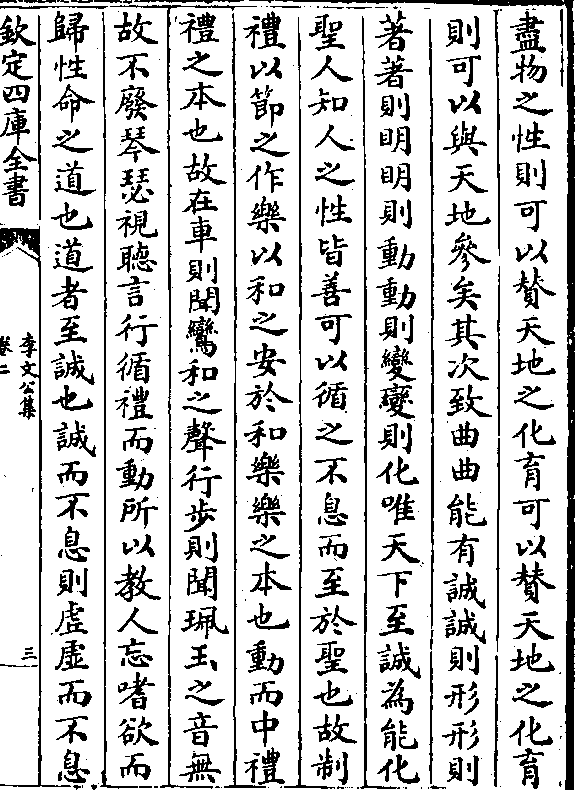 盡物之性則可以賛天地之化育可以賛天地之化育
則可以與天地參矣其次致曲曲能有誠誠則形形則
著著則明明則動動則變變則化唯天下至誠為能化
聖人知人之性皆善可以循之不息而至於聖也故制
禮以節之作樂以和之安於和樂樂之本也動而中禮
禮之本也故在車則聞鸞和之聲行步則聞珮玉之音無
故不廢琴瑟視聽言行循禮而動所以教人忘嗜欲而
歸性命之道也道者至誠也誠而不息則虛虛而不息
欽定四庫全書
李文公集
卷二
三